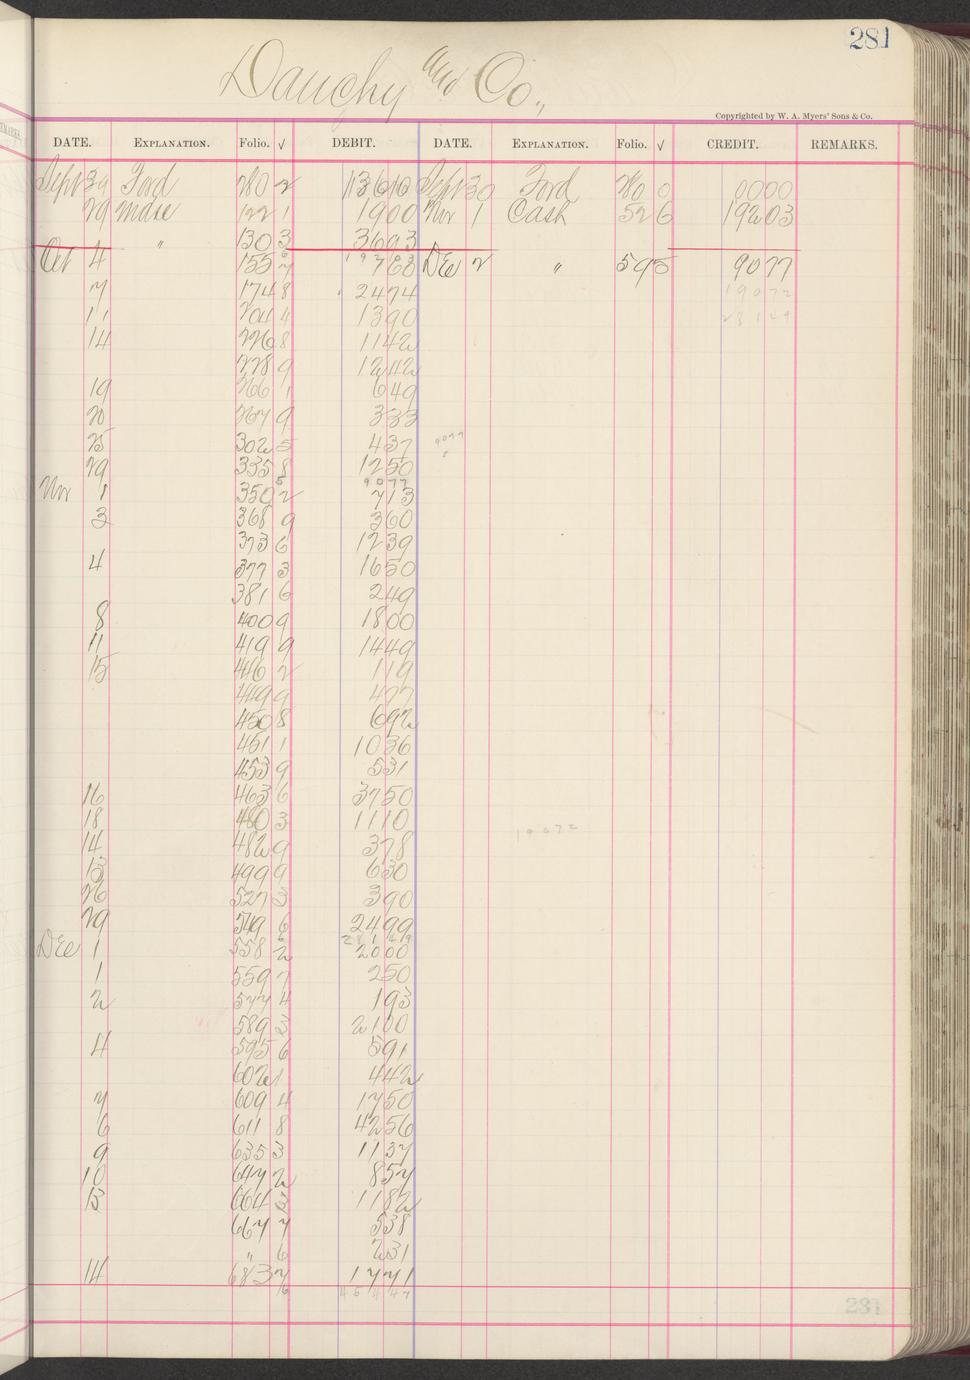 281
Dauchy and Co.,
Copyrighted by W. A. Myers' Sons & Co.
DATE. EXPLANATION. Folio. √ DEBIT. DATE. EXPLANATION. Folio. √ CREDIT. REMARKS.
Sept 30 Ford 280 2 13610 Sept 30 Ford 280 0 0000
29 Mdse 122 1 1900 Nov 1 Cash 52 6 19203
" 130 3 3693
Oct 4 155 7 788 Dec 2 " 595 9077
7 174 8 2474 19072
11 204 4 1390 28149
14 226 8 1142
228 9 1242
19 266 1 649
20 267 9 333
25 302 5 437 9077
29 335 8 1250
9077
Nov 1 350 2 713
3 368 9 360
373 6 1239
4 377 3 1650
381 6 249
8 400 9 1800
11 419 9 1449
15 446 2 119
449 9 477
450 8 692
451 1 1036
453 9 531
16 463 6 3750
18 480 3 1110 19072
14 482 9 378
15 499 9 630
26 527 3 390
29 549 6 2499
28149
Dec 1 558 2 2000
1 559 7 250
2 577 4 193
589 3 2100
4 595 6 591
602 1 442
7 609 4 1750
6 611 8 4256
9 635 3 1137
10 647 2 857
13 664 3 1182
667 7 538
" 6 231
14 683 7 1771
281